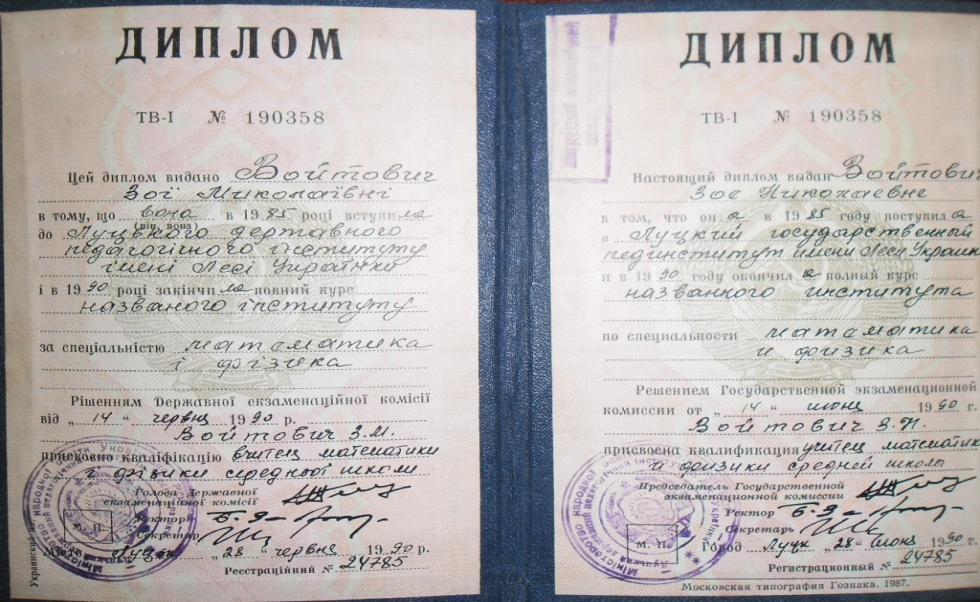 ДИПЛОМ
ТВ-I № 190358
Цей диплом видано Войтович
Зої Миколаївні
в тому, що вона в 1985 році вступила
(він, вона)
до Луцького державного
педагогічного інституту
імені Лесі Українки
і в 1990 році закінчила повний курс
названого інституту
за спеціальністю математика
і фізика
Рішенням Державної екзаменаційної комісії
від „14“ червня 1990 р.
Войтович З.М.
присвоєно кваліфікацію вчитель математики
і фізики середньої школи
Голова Державної
екзаменаційної комісії
Ректор
Секретар
М. П.
Місто Луцьк „28“ червня 1990 р.
Реєстраційний № 24785
ДИПЛОМ
ТВ-I № 190358
Настоящий диплом выдан Войтович
Зое Николаевне
в том, что она в 1985 году поступила
в Луцкий государственный
пединститут имени Леси Украинки
и в 1990 году окончила полный курс
названного института
по специальности математика
и физика
Решением Государственной экзаменационной
комиссии от „14“ июня 1990 г.
Войтович З.Н.
присвоена квалификация учитель математики
и физики средней школы
Председатель Государственной
экзаменационной комиссии
Ректор
Секретарь
М. П.
Город Луцк „28“ июня 1990 г.
Регистрационный № 24785
Московская типография Гознака. 1987.